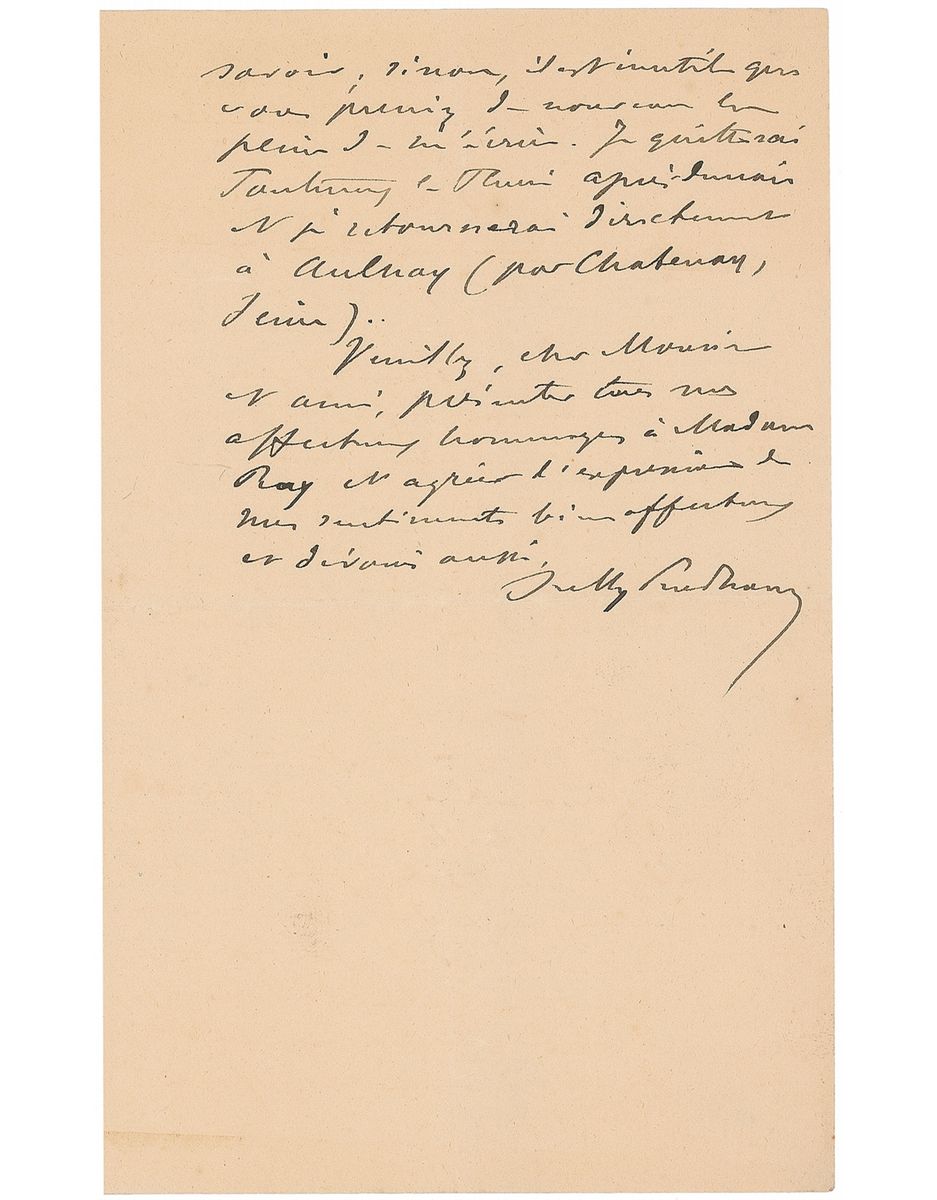 savoir ; sinon, il est inutile que
vous preniez de nouveau la
peine de m'écrire. Je quitterai
le après-demain
et je retournerai directement
à Aulnay (par Chatenay,
Seine).
Veuillez, cher Monsieur
et ami, présenter tous mes
affectueux hommages à Madame
Ray et agréer l'expression de
mes sentiments bien affectueux
et dévoués aussi.
Sully Prudhomme